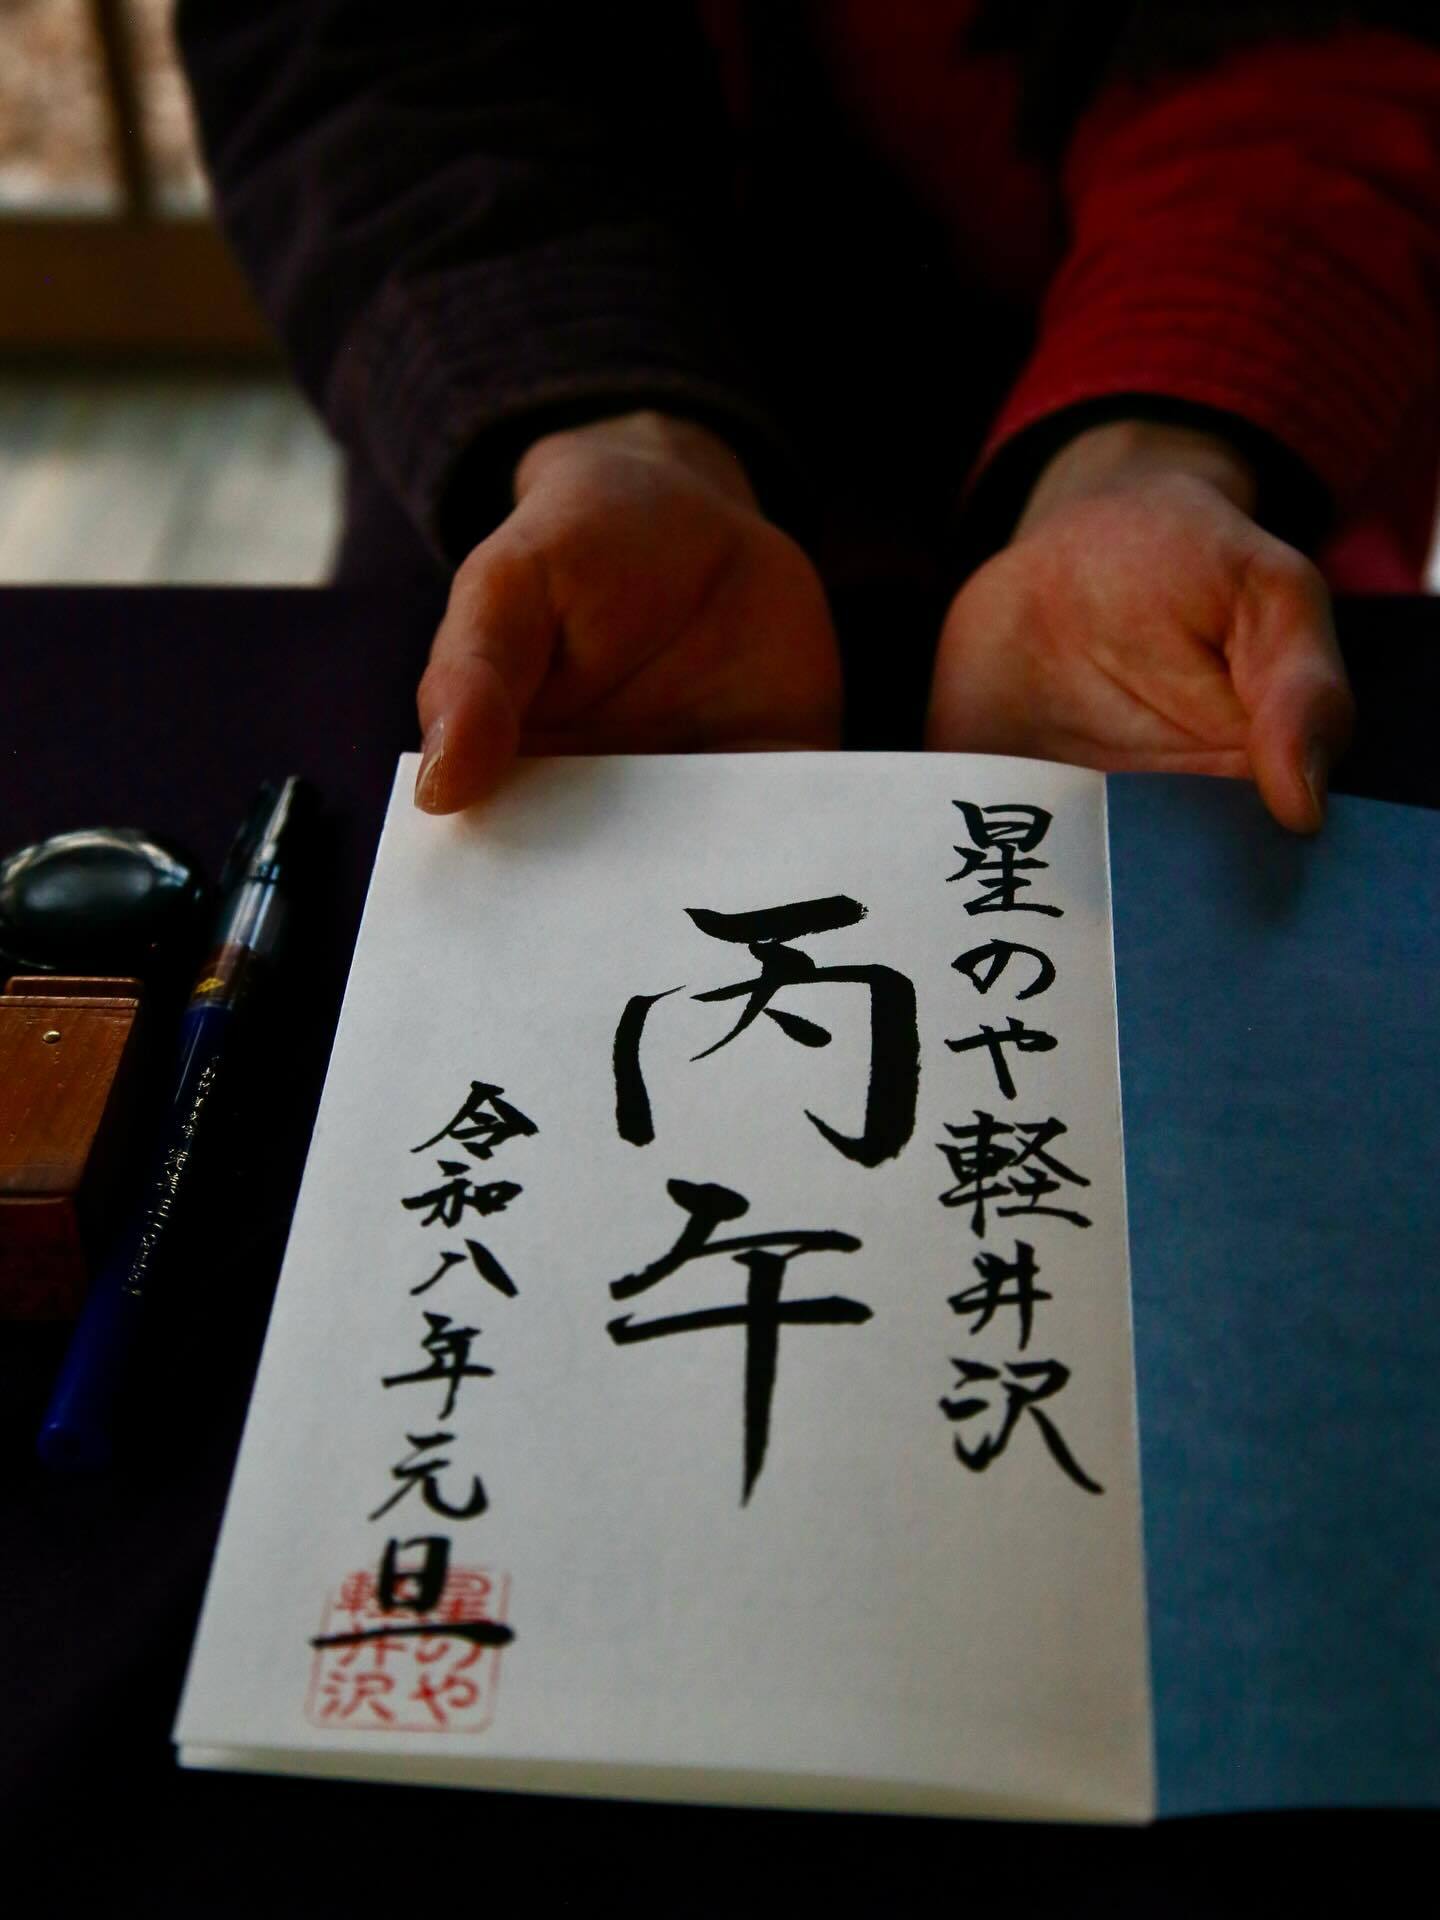 星のや軽井沢
丙午
令和八年元旦
星のや
軽井沢